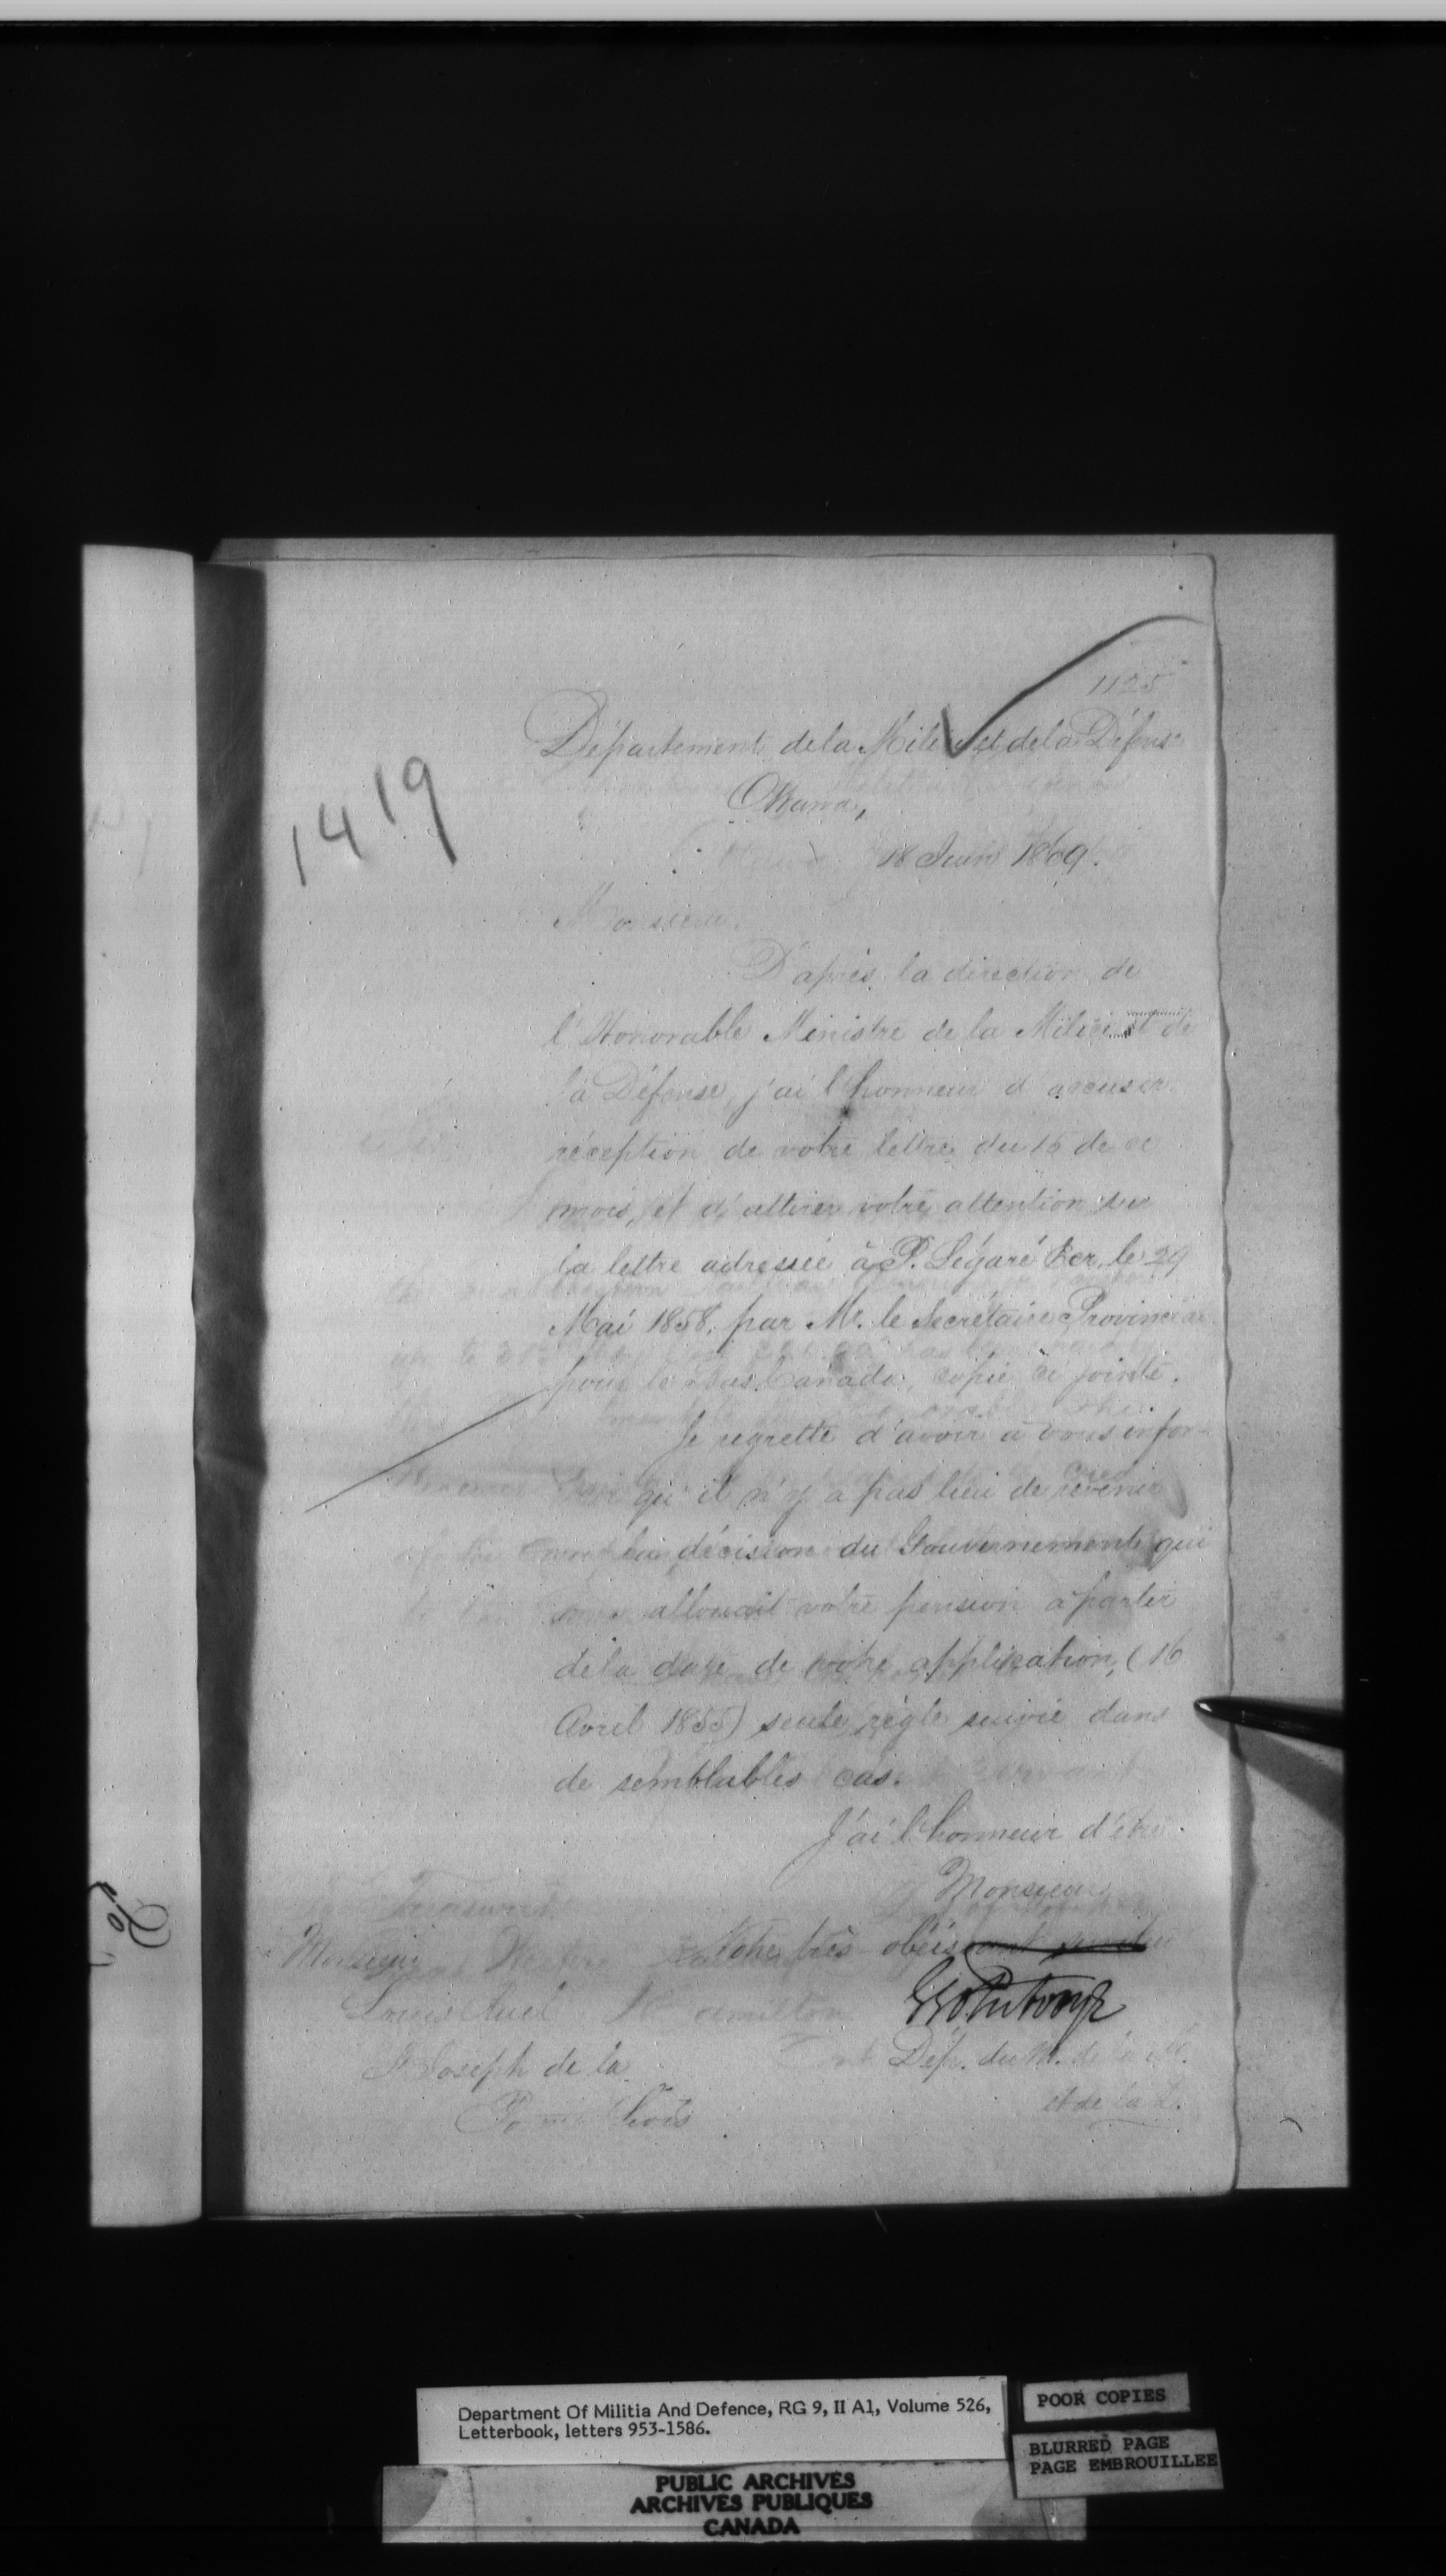 1125
Département de la Milice et de la Défense
1419
Ottawa,
18 Juin 1869.
Monsieur,
D'après la direction de
l'Honorable Ministre de la Milice et de
la Défense, j'ai l'honneur d'accuser
réception de votre lettre du 15 de ce
mois, et d'attirer votre attention sur
la lettre adressée à P. Légaré Ecr, le 29
Mai 1858, par Mr. le Secrétaire Provincial
pour le Bas Canada, copie ci jointe.
Je regrette d'avoir à vous infor-
qu'il n'y a pas lieu de revenir
la décision du Gouvernement qui
allouait votre pension à partir
de la date de votre application, (16
Avril 1855) seule règle suivie dans
de semblables cas.
J'ai l'honneur d'être
Monsieur
Votre très obéissant serviteur
Monsieur
Louis
St Joseph de la
Pointe Lévis
Dép. du M. de la M.
et de la D.
Department Of Militia And Defence, RG 9, II A1, Volume 526,
Letterbook, letters 953-1586.
POOR COPIES
BLURRED PAGE
PAGE EMBROUILLEE
PUBLIC ARCHIVES
ARCHIVES PUBLIQUES
CANADA